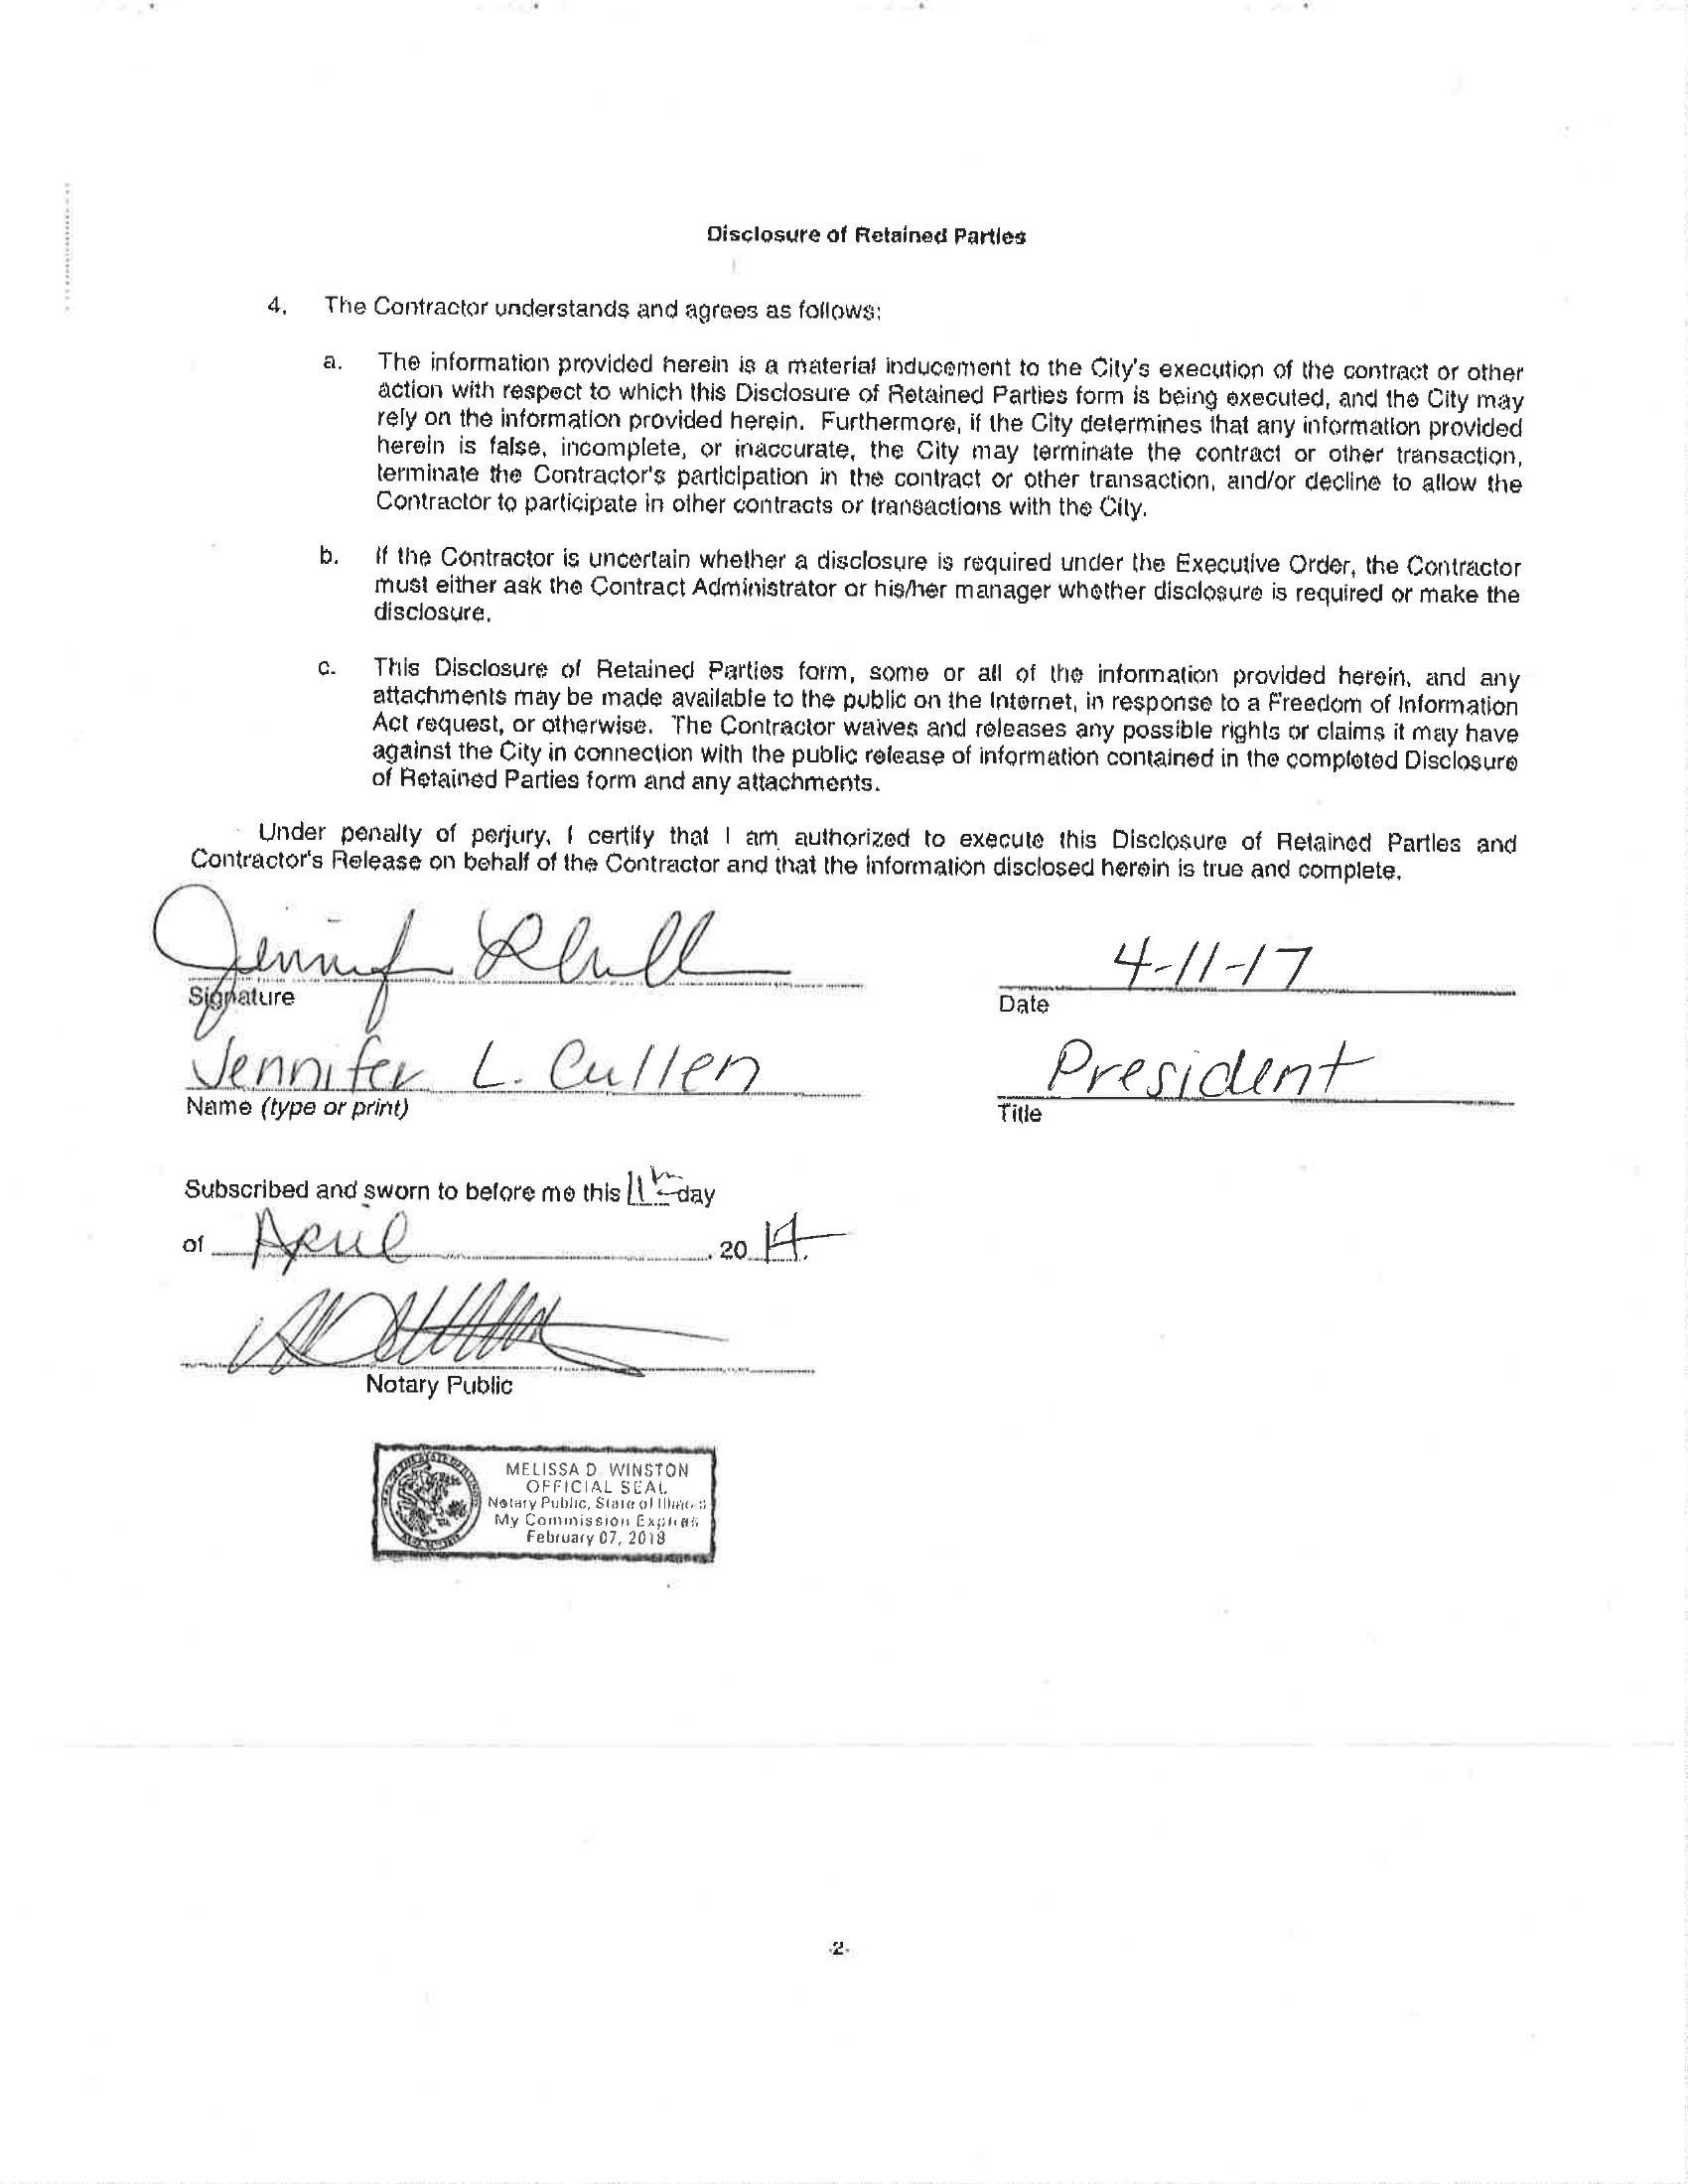 Disclosure of Retained Parties
4. The Contractor understands and agrees as follows:
a. The information provided herein is a material inducement to the City's execution of the contract or other
action with respect to which this Disclosure of Retained Parties form is being executed, and the City may
rely on the information provided herein. Furthermore, if the City determines that any information provided
herein is false, incomplete, or inaccurate, the City may terminate the contract or other transaction,
terminate the Contractor's participation in the contract or other transaction, and/or decline to allow the
Contractor to participate in other contracts or transactions with the City.
b. If the Contractor is uncertain whether a disclosure is required under the Executive Order, the Contractor
must either ask the Contract Administrator or his/her manager whether disclosure is required or make the
disclosure.
c. This Disclosure of Retained Parties form, some or all of the information provided herein, and any
attachments may be made available to the public on the Internet, in response to a Freedom of Information
Act request, or otherwise. The Contractor waives and releases any possible rights or claims it may have
against the City in connection with the public release of information contained in the completed Disclosure
of Retained Parties form and any attachments.
Under penalty of perjury, I certify that I am authorized to execute this Disclosure of Retained Parties and
Contractor's Release on behalf of the Contractor and that the information disclosed herein is true and complete.
4-11-17
Signature Date
Jennifer L. Cullen President
Name (type or print) Title
Subscribed and sworn to before me this 11th day
of April, 20 17.
Notary Public
MELISSA D. WINSTON
OFFICIAL SEAL
Notary Public, State of Illinois
My Commission Expires
February 07, 2018
-2-